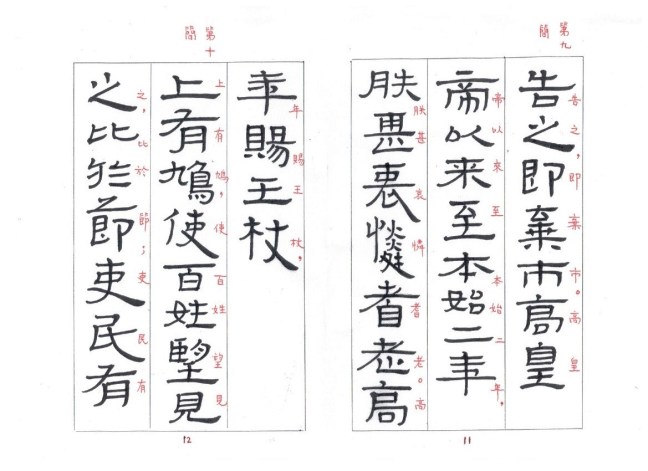 第九簡
告之即棄市高皇
告之，即棄市。高皇
帝以来至本始二年
帝以來至本始二年，
朕甚哀憐耆老高
朕甚哀憐耆老。高
11
第十簡
年賜王杖
年賜王杖，
上有鳩使百姓望見
上有鳩，使百姓望見
之比於節吏民有
之，比於節；吏民有
12